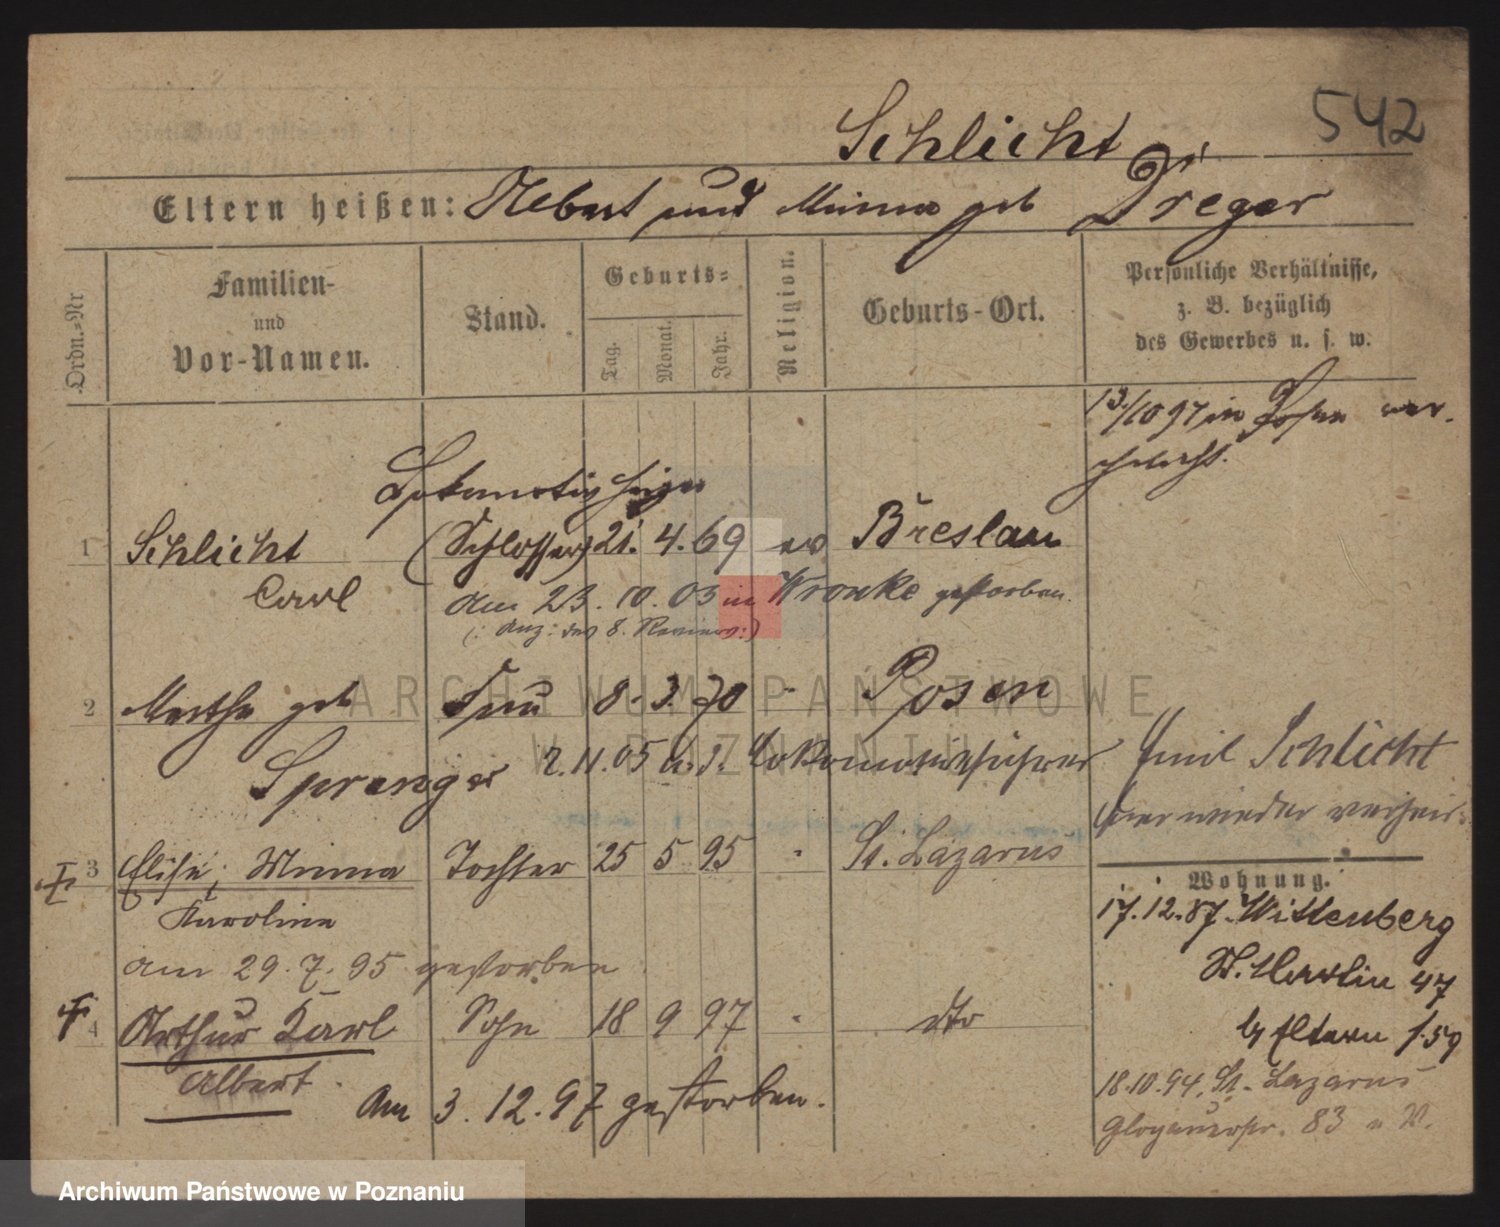 542
Schlicht
Eltern heißen: Albert und Minna geb Dreger
Ordn.-Nr
Familien-
und
Vor-Namen.
Stand.
Geburts-
Tag.
Monat.
Jahr.
Religion.
Geburts-Ort.
Persönliche Verhältnisse,
z. B. bezüglich
des Gewerbes u. s. w.
13/10 97 in Posen ver-
1 Schlicht (Schlosser) 21. 4. 69 ev Breslau
Carl
am 23. 10. 03 in Wronke gestorben.
(: Anz: des 8. Reviers :)
2 Martha geb Frau 8. 3. 70 " Posen
Spranger 2.11.05 Lokomotivführer Emil Schlicht
hier wieder verheir.
3 Elise, Minna Tochter 25 5 95 " St. Lazarus
Karoline
am 29. 7. 95 gestorben
4 Arthur Karl Sohn 18 9 97 " dto
Albert
Am 3. 12. 97 gestorben.
Wohnung.
17. 12. 87. Wittenberg
St. Martin 47
b/ Eltern f. 59
18.10.94. St. Lazarus
Glogauerstr. 83
ARCHIWUM PAŃSTWOWE
W POZNANIU
Archiwum Państwowe w Poznaniu